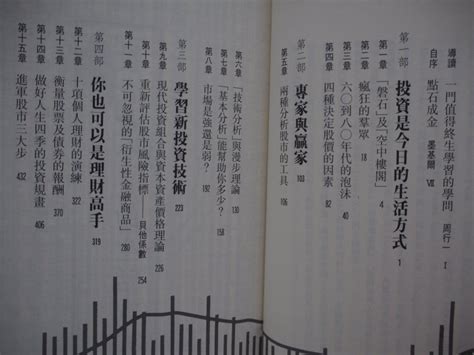 導讀 一門值得終生學習的學問 周行一 I
自序 點石成金 墨基爾 VII
第一部 投資是今日的生活方式 1
第一章 「磐石」及「空中樓閣」 4
第二章 瘋狂的羣眾 18
第三章 六〇到八〇年代的泡沫 40
第四章 四種決定股價的因素 82
第二部 專家與贏家 103
第五章 兩種分析股市的工具 106
第六章 「技術分析」與漫步理論 130
第七章 「基本分析」能幫助你多少? 158
第八章 市場是強還是弱? 192
第三部 學習新投資技術 223
第九章 現代投資組合與資本資產價格理論 226
第十章 重新評估股市風險指標——貝他係數 254
第十一章 不可忽視的「衍生性金融商品」 280
第四部 你也可以是理財高手 319
第十二章 十項個人理財的演練 322
第十三章 衡量股票及債券的報酬 370
第十四章 做好人生四季的投資規畫 406
第十五章 進軍股市三大步 432